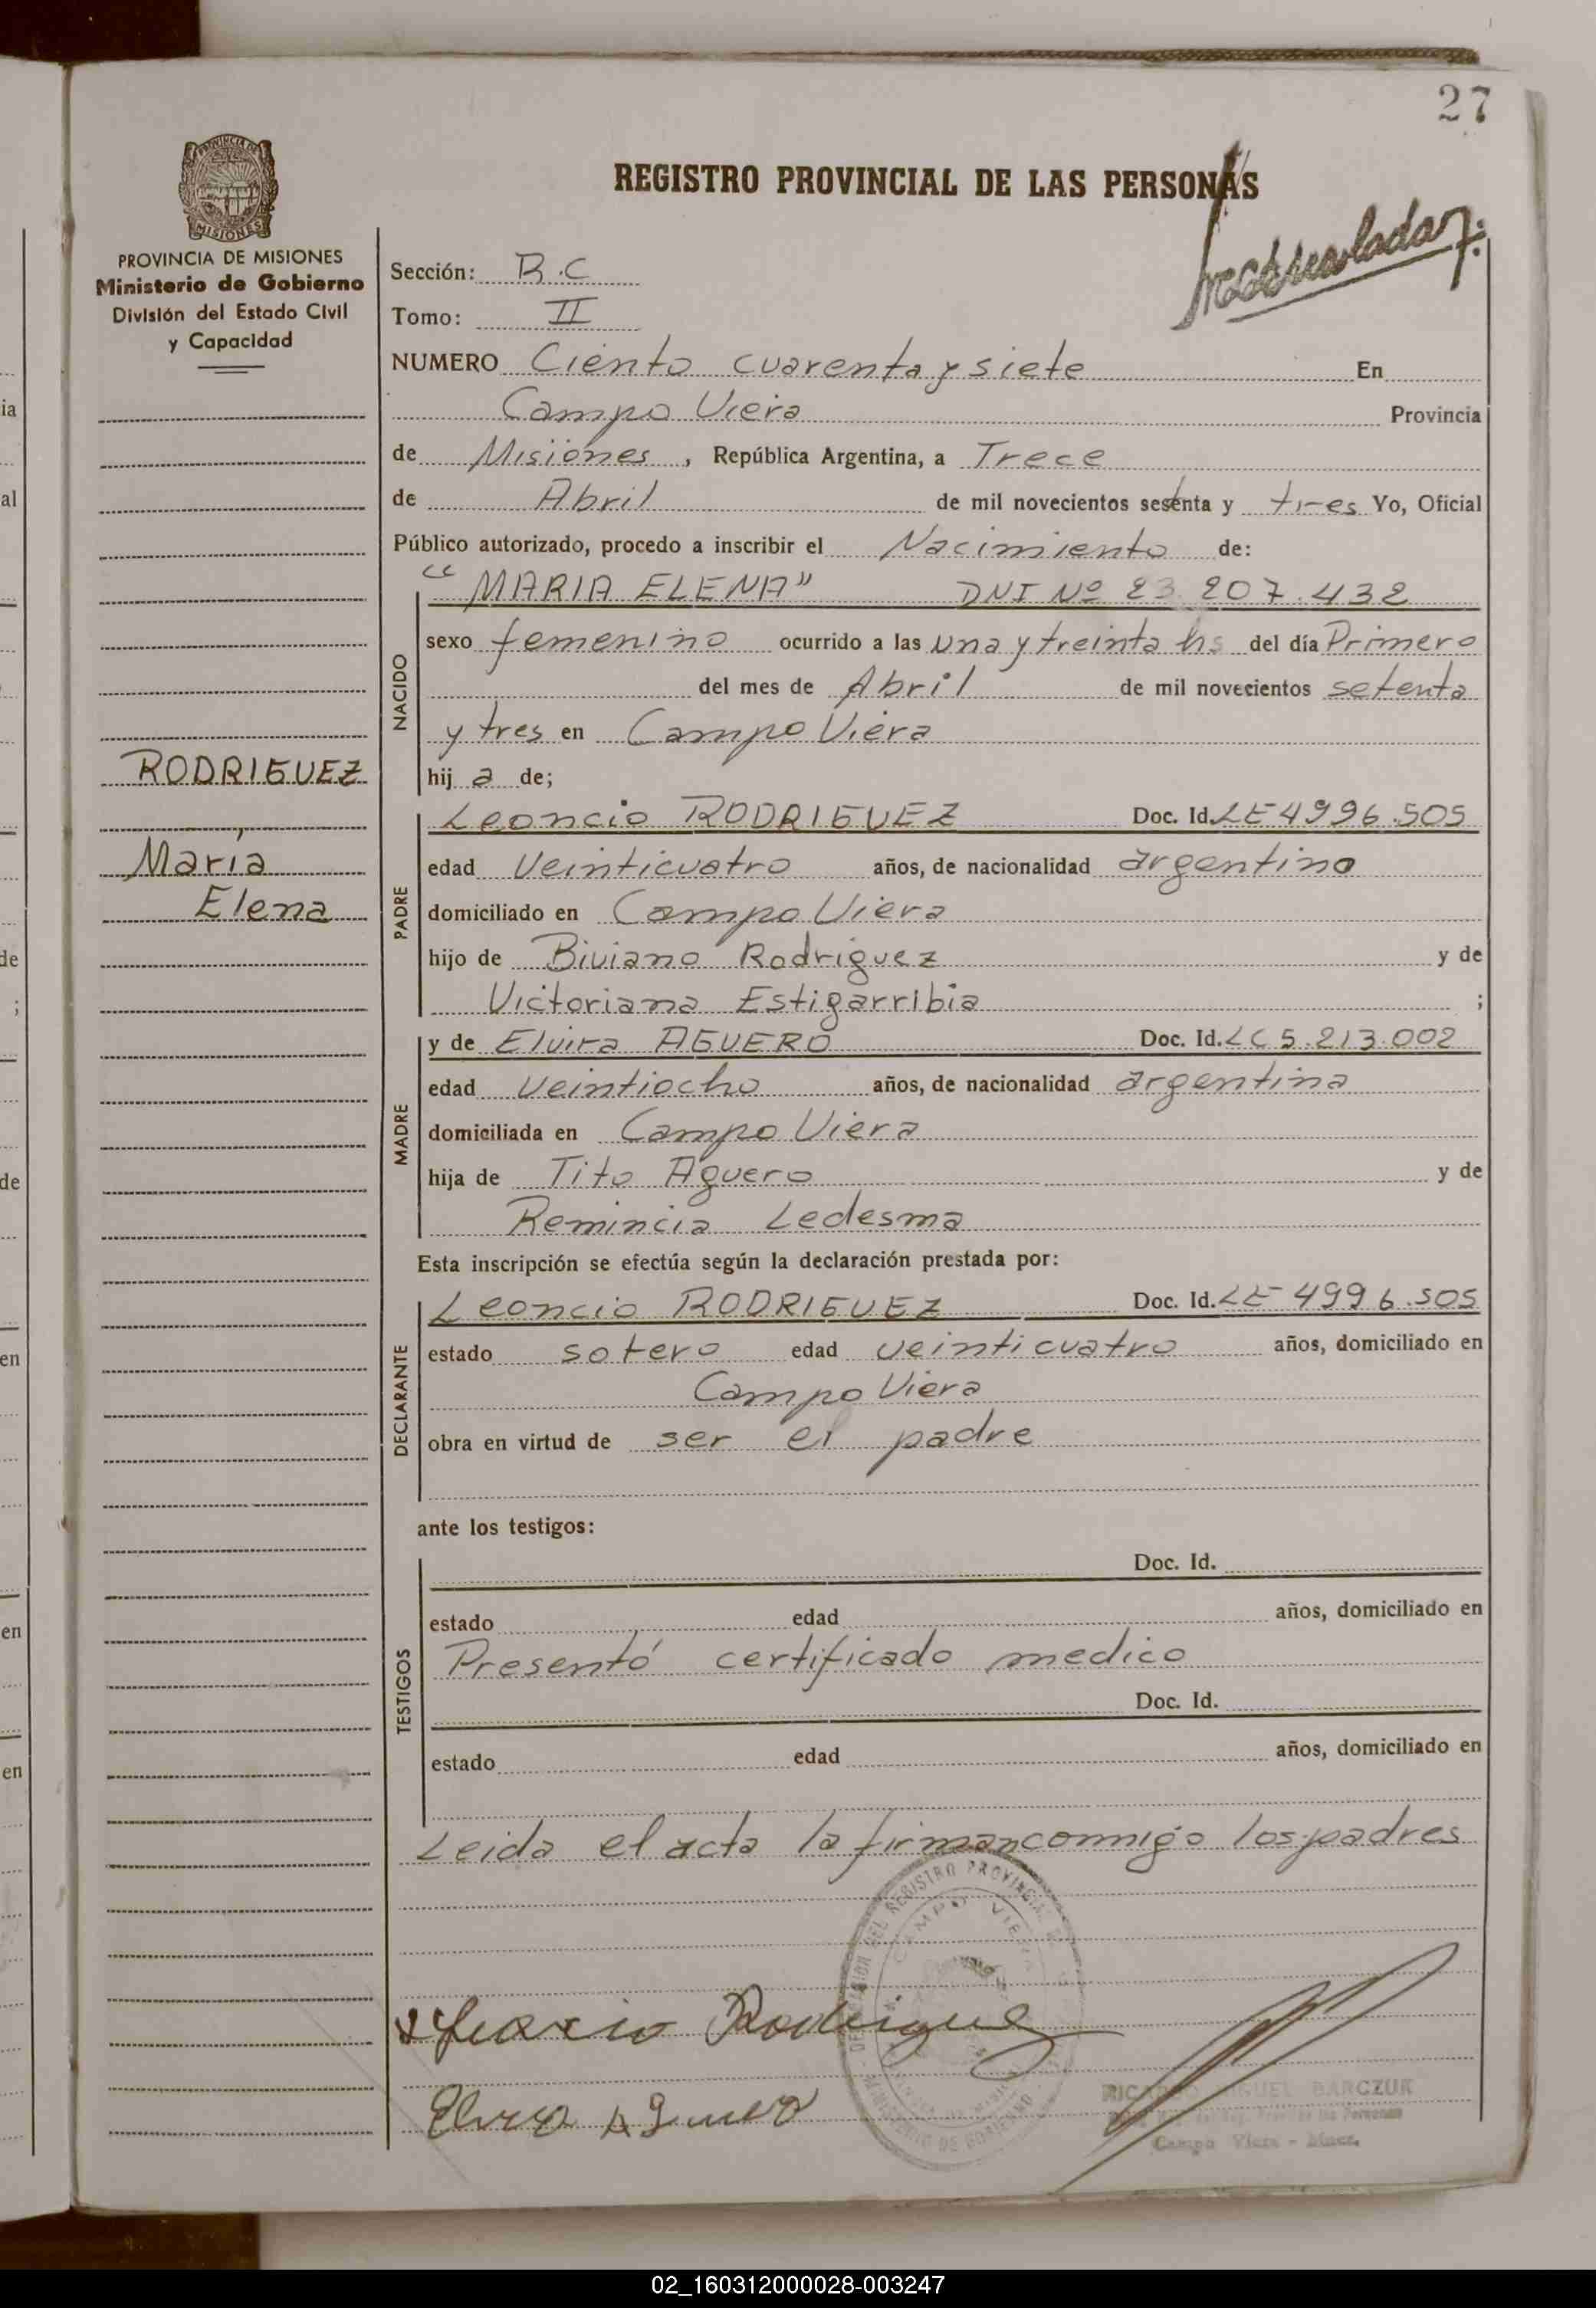 27
REGISTRO PROVINCIAL DE LAS PERSONAS
matriculada
PROVINCIA DE MISIONES
Ministerio de Gobierno
División del Estado Civil
y Capacidad
Sección: R.C
Tomo: II
NUMERO Ciento cuarenta y siete En
Campo Viera Provincia
de Misiones, República Argentina, a Trece
de Abril de mil novecientos setenta y tres Yo, Oficial
Público autorizado, procedo a inscribir el Nacimiento de:
"MARIA ELENA" DNI Nº 23.207.432
NACIDO
sexo femenino ocurrido a las una y treinta hs del día Primero
del mes de Abril de mil novecientos setenta
y tres en Campo Viera
hij a de;
RODRIGUEZ
María
Elena
PADRE
Leoncio RODRIGUEZ Doc. Id. LE 4996.505
edad Veinticuatro años, de nacionalidad argentino
domiciliado en Campo Viera
hijo de Biviano Rodriguez y de
Victoriana Estigarribia ;
MADRE
y de Elvira AGUERO Doc. Id. LC 5.213.002
edad veintiocho años, de nacionalidad argentina
domiciliada en Campo Viera
hija de Tito Aguero y de
Remincia Ledesma
Esta inscripción se efectúa según la declaración prestada por:
DECLARANTE
Leoncio RODRIGUEZ Doc. Id. LE 4996.505
estado sotero edad veinticuatro años, domiciliado en
Campo Viera
obra en virtud de ser el padre
ante los testigos:
TESTIGOS
Doc. Id.
estado edad años, domiciliado en
Presentó certificado medico
Doc. Id.
estado edad años, domiciliado en
Leida el acta la firman conmigo los padres
Rodriguez
Elvira Aguero
DELEGACION DEL REGISTRO PROVINCIAL
CAMPO VIERA
MINISTERIO DE GOBIERNO
RICARDO MIGUEL BARCZUK
Campo Viera - Mnes.
02_160312000028-003247